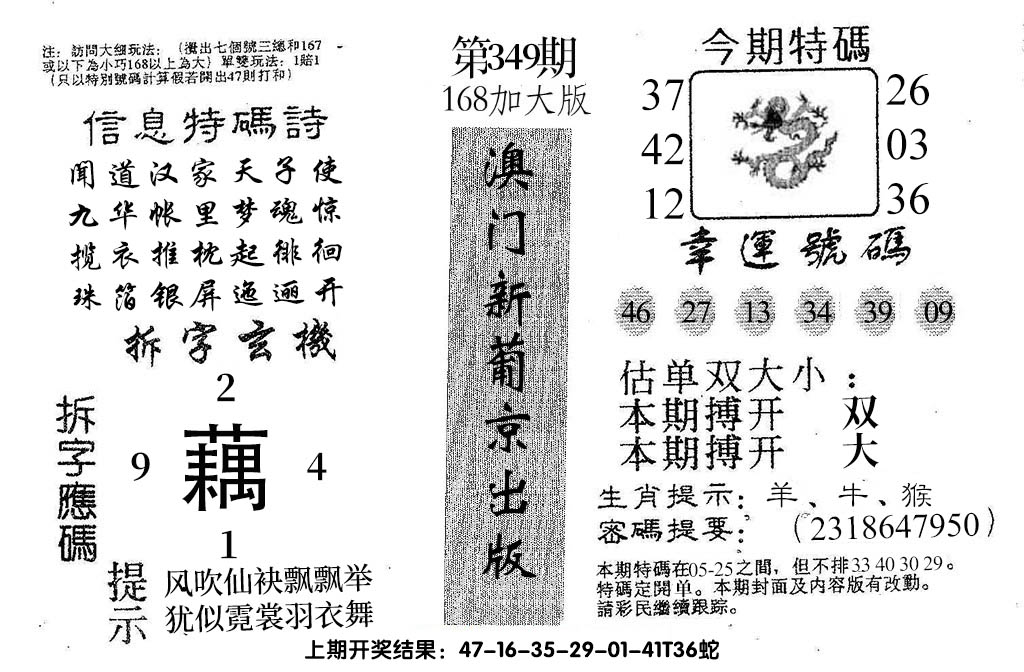 注：訪問大细玩法：（攪出七個號三總和167
或以下為小巧168以上為大）單雙玩法：1賠1
（只以特別號碼計算假若開出47則打和）
信息特碼詩
闻道汉家天子使
九华帐里梦魂惊
揽衣推枕起徘徊
珠箔银屏迤逦开
拆字玄機
拆字應碼
2
9 藕 4
1
提示
风吹仙袂飘飘举
犹似霓裳羽衣舞
第349期
168加大版
澳门新葡京出版
今期特碼
37 26
42 03
12 36
幸運號碼
46 27 13 34 39 09
估单双大小：
本期搏开 双
本期搏开 大
生肖提示：羊、牛、猴
密碼提要：（2318647950）
本期特碼在05-25之間，但不排33 40 30 29。
特碼定開单。本期封面及内容版有改動。
請彩民繼續跟踪。
上期开奖结果：47-16-35-29-01-41T36蛇